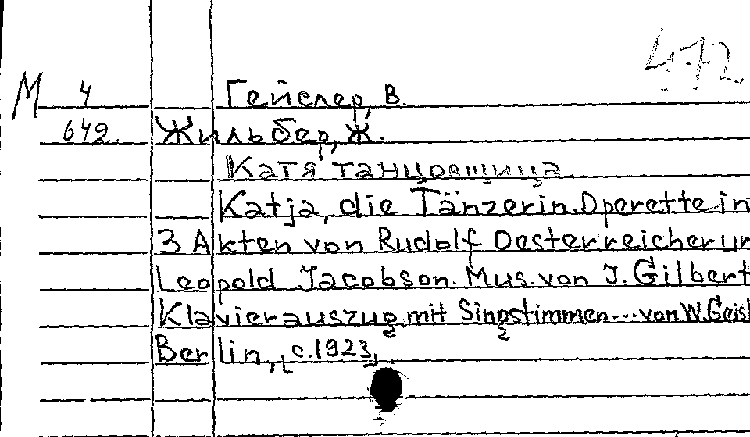 472
М 4 Гейслер, В.
642. Жильбер, Ж.
Катя танцовщица
Katja, die Tänzerin. Operette in
3 Akten von Rudolf Oesterreicher un
Leopold Jacobson. Mus. von J. Gilbert
Klavierauszug mit Singstimmen... von W. Geisl
Berlin, [c. 1923]